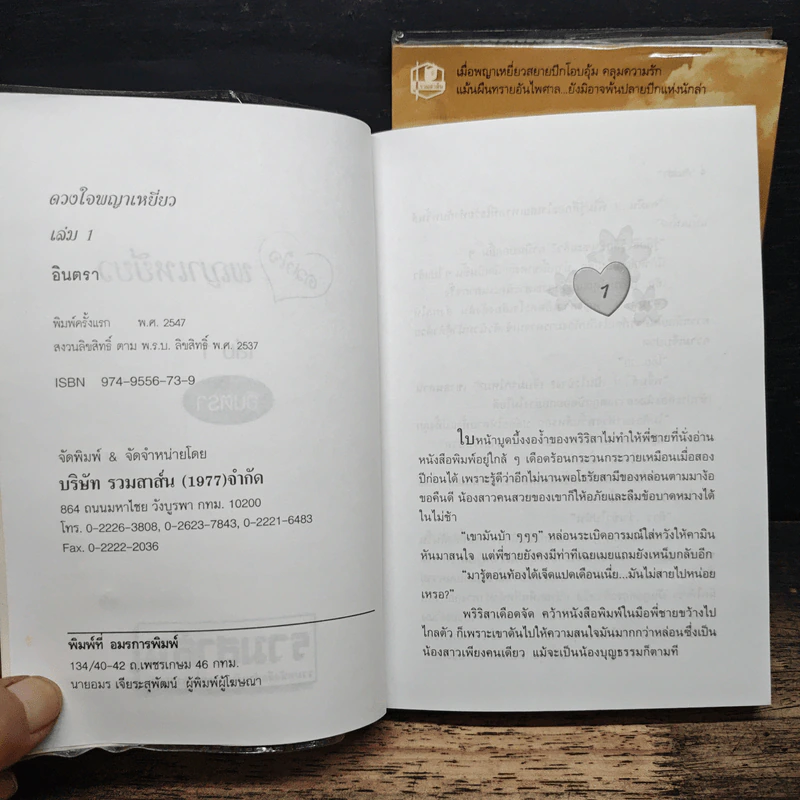 เมื่อพญาเหยี่ยวสยายปีกโอบอุ้ม คลุมความรัก
แม้นผืนทรายอันไพศาล...ยังมิอาจพ้นปลายปีกแห่งนักล่า
ดวงใจพญาเหยี่ยว
เล่ม 1
อินตรา
พิมพ์ครั้งแรก พ.ศ. 2547
สงวนลิขสิทธิ์ ตาม พ.ร.บ. ลิขสิทธิ์ พ.ศ. 2537
ISBN 974-9556-73-9
จัดพิมพ์ & จัดจำหน่ายโดย
บริษัท รวมสาส์น (1977)จำกัด
864 ถนนมหาไชย วังบูรพา กทม. 10200
โทร. 0-2226-3808, 0-2623-7843, 0-2221-6483
Fax. 0-2222-2036
พิมพ์ที่ อมรการพิมพ์
134/40-42 ถ.เพชรเกษม 46 กทม.
นายอมร เจียระสุพัฒน์ ผู้พิมพ์ผู้โฆษณา
1
ใบหน้าบูดบึ้งงอง้ำของพริริสาไม่ทำให้พี่ชายที่นั่งอ่าน
หนังสือพิมพ์อยู่ใกล้ ๆ เดือดร้อนกระวนกระวายเหมือนเมื่อสอง
ปีก่อนได้ เพราะรู้ดีว่าอีกไม่นานพอโธรัยสามีของหล่อนตามมาง้อ
ขอคืนดี น้องสาวคนสวยของเขาก็ให้อภัยและลืมข้อบาดหมางได้
ในไม่ช้า
"เขามันบ้า ๆๆๆ" หล่อนระเบิดอารมณ์ใส่หวังให้คามิน
หันมาสนใจ แต่พี่ชายยังคงมีท่าทีเฉยเมยแถมยังเหน็บกลับอีก
"มารู้ตอนท้องได้เจ็ดแปดเดือนเนี่ย...มันไม่สายไปหน่อย
เหรอ?"
พริริสาเดือดจัด คว้าหนังสือพิมพ์ในมือพี่ชายขว้างไป
ไกลตัว ก็เพราะเขาดันไปให้ความสนใจมันมากกว่าหล่อนซึ่งเป็น
น้องสาวเพียงคนเดียว แม้จะเป็นน้องบุญธรรมก็ตามที